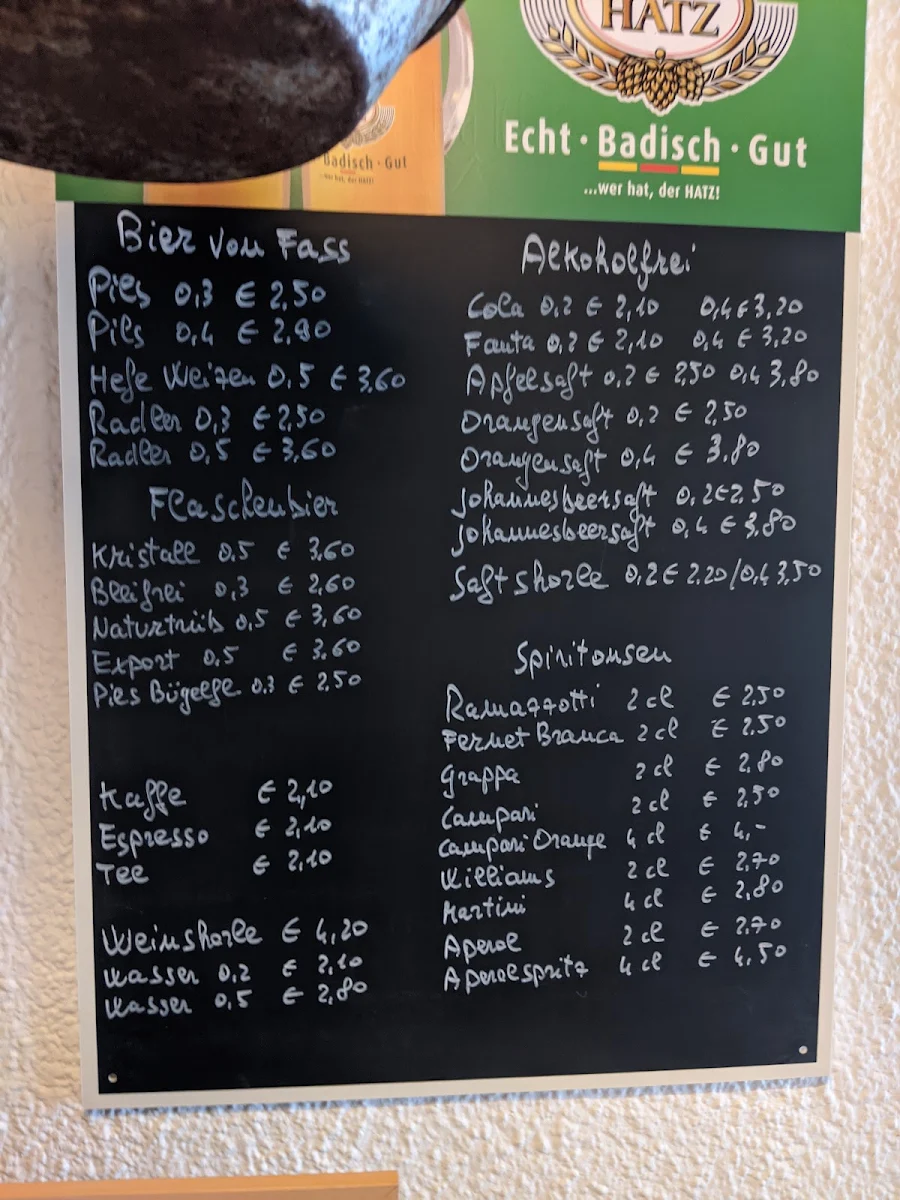 HATZ
Echt · Badisch · Gut
...wer hat, der HATZ!
Badisch · Gut
...wer hat, der HATZ!
Bier vom Fass
Pils 0,3 € 2,50
Pils 0,4 € 2,90
Hefe Weizen 0,5 € 3,60
Radler 0,3 € 2,50
Radler 0,5 € 3,60
Flaschenbier
Kristall 0.5 € 3,60
Bleifrei 0,3 € 2,60
Naturtrüb 0,5 € 3,60
Export 0.5 € 3.60
Pils Bügelfl. 0.3 € 2.50
Kaffe € 2,10
Espresso € 2,10
Tee € 2,10
Weinshorle € 4,20
Wasser 0,2 € 2,10
Wasser 0,5 € 2,80
Alkoholfrei
Cola 0,2 € 2,10 0,4 € 3,20
Fanta 0,2 € 2,10 0,4 € 3,20
Apfelsaft 0,2 € 2,50 0,4 3,80
Orangensaft 0,2 € 2,50
Orangensaft 0,4 € 3.80
Johannesbeersaft 0,2 € 2.50
Johannesbeersaft 0,4 € 3,80
Saftshorle 0,2 € 2.20/0,4 3,50
Spiritousen
Ramazzotti 2 cl € 2,50
Fernet Branca 2 cl € 2.50
Grappa 2 cl € 2.80
Campari 2 cl € 2,50
Campari Orange 4 cl € 4,-
Williams 2 cl € 2,70
Martini 4 cl € 2,80
Aperol 2 cl € 2.70
Aperolspritz 4 cl € 4.50